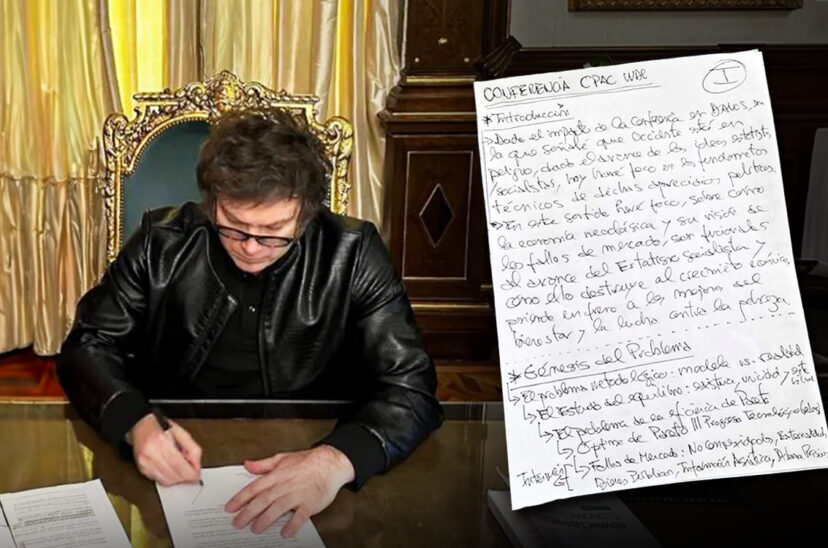 CONFERENCIA CPAC WDC
I
* Introducción
→ Dado el impacto de la conferencia en DAVOS, en
la que señalé que Occidente está en
peligro, dado el avance de las ideas estatistas
/socialistas, hoy haré foco en los fundamentos
técnicos de dichas apreciaciones políticas.
→ En este sentido haré foco, sobre como
la economía neoclásica y su visión de
los fallos de mercado, son funcionales
al avance del Estatismo socialista y
como ello destruye al crecimiento económico,
poniendo en freno a las mejoras del
bienestar y la lucha contra la pobreza
* Génesis del Problema
→ El problema metodológico: modelo vs. realidad
↳ El Estudio del equilibrio: existencia, unicidad y
↳ El problema de la eficiencia de Pareto
↳ Optimo de Pareto /// Progreso Tecnológico
↳ Fallos de Mercado: No Competitivos, Externalidad,
Intervención
Bienes Públicos, Información Asimétrica, Dilema